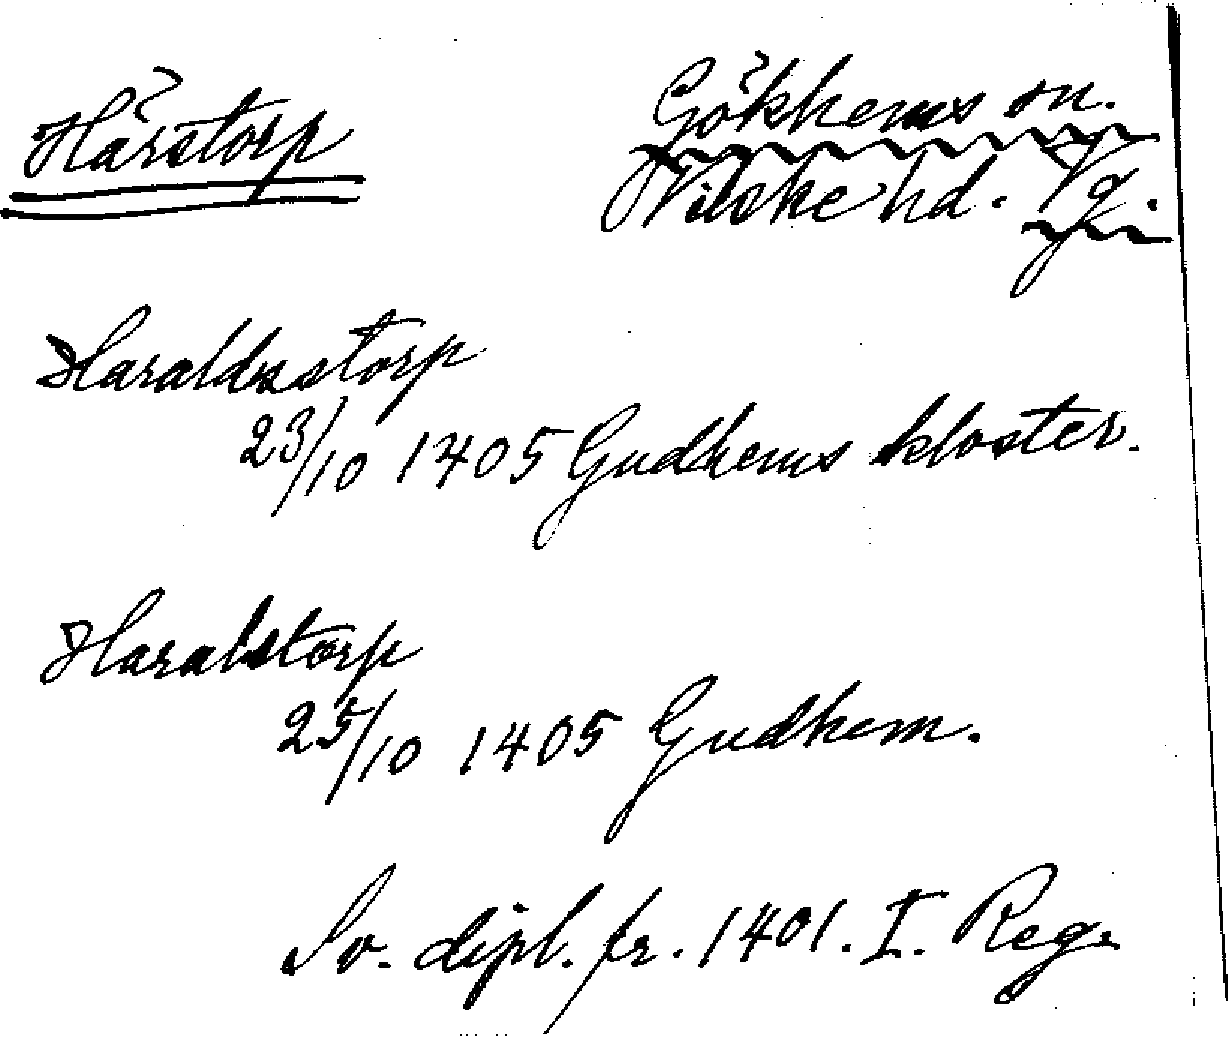 Härstorp
Gökhems sn.
Vilske hd. Vg.
Haraldsstorp
23/10 1405 Gudhems kloster.
Haralstorp
25/10 1405 Gudhem.
Sv. dipl. fr. 1401. I. Reg.